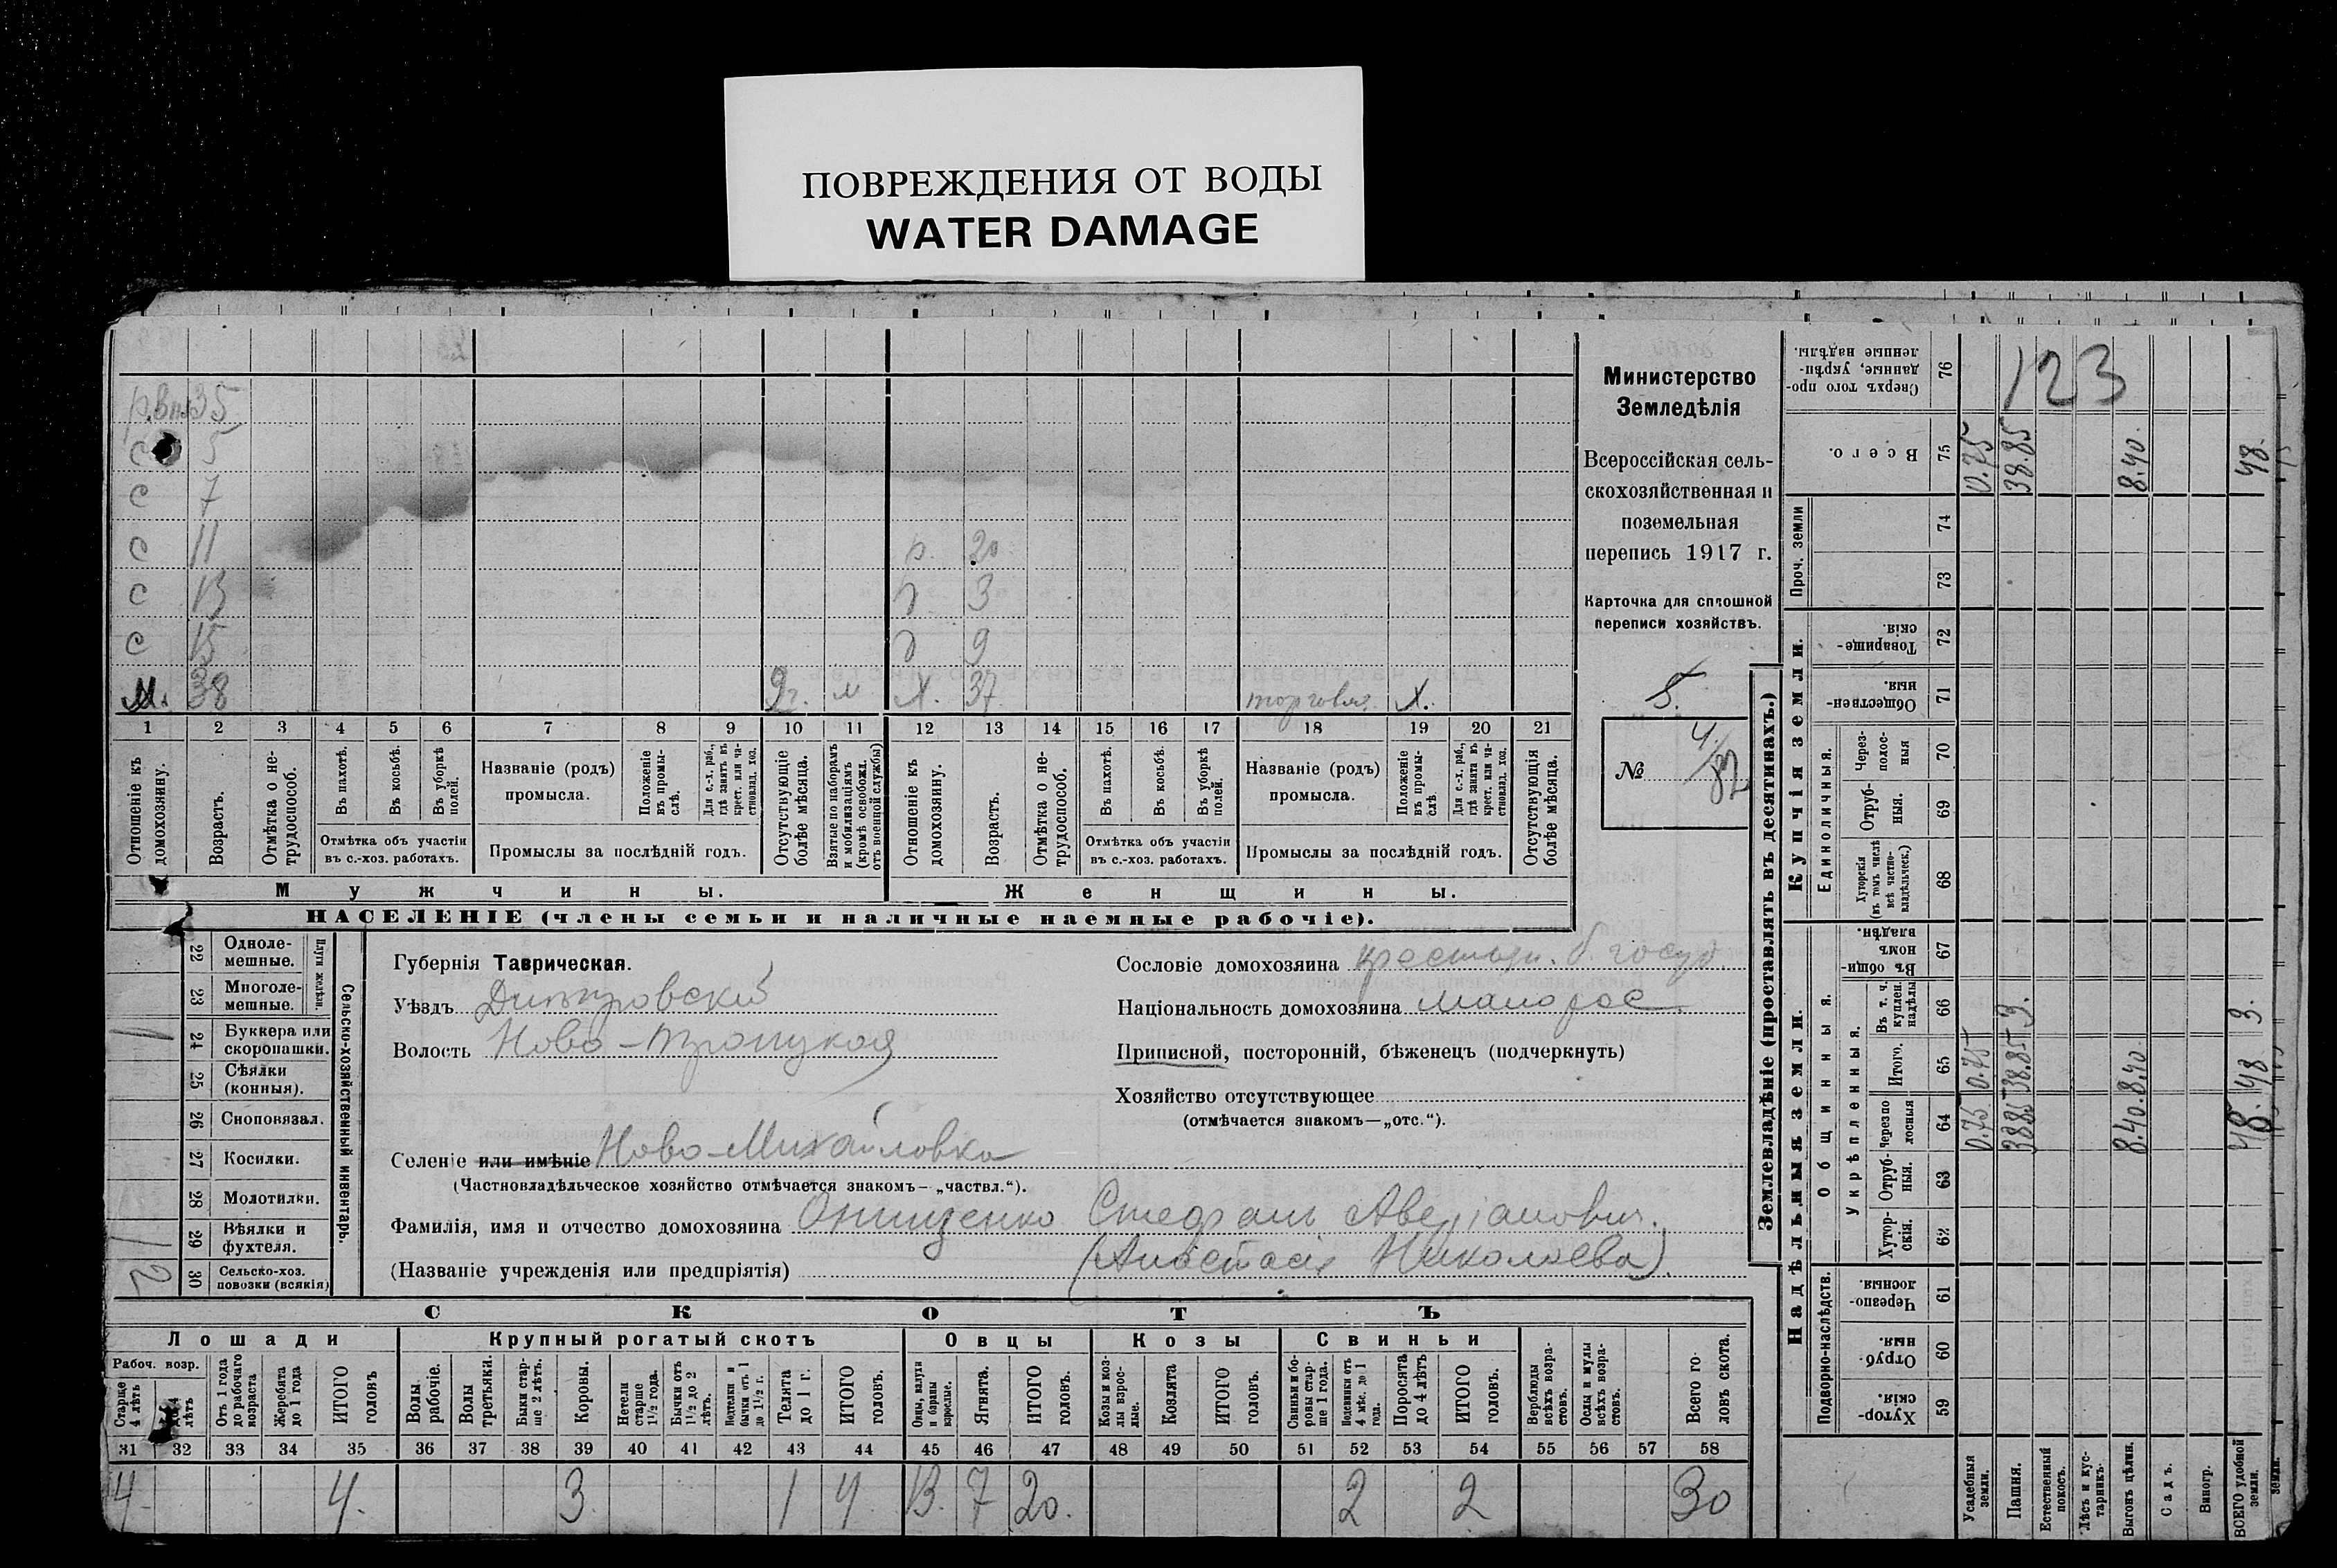 ПОВРЕЖДЕНИЯ ОТ ВОДЫ
WATER DAMAGE
35
с 5
с 7
с 11
с 13
с 15
М. 38 2г. м
р. 20
3
9
37 торговля
1 2 3 4 5 6 7 8 9 10 11 12 13 14 15 16 17 18 19 20 21
Отношеніе къ домохозяину.
Возрастъ.
Отмѣтка о не-трудоспособ.
Въ пахотѣ.
Въ косьбѣ.
Въ уборкѣ полей.
Отмѣтка объ участіи въ с.-хоз. работахъ.
Названіе (родъ) промысла.
Положеніе въ промы-слѣ.
Для с.-х. раб., гдѣ занятъ въ крест. или ча-стновлад. хоз.
Промыслы за послѣдній годъ.
Отсутствующіе болѣе мѣсяца.
Взятые по наборамъ и мобилизаціямъ (кромѣ освобожд. отъ военной службы)
Отношеніе къ домохозяину.
Возрастъ.
Отмѣтка о не-трудоспособ.
Въ пахотѣ.
Въ косьбѣ.
Въ уборкѣ полей.
Отмѣтка объ участіи въ с.-хоз. работахъ.
Названіе (родъ) промысла.
Положеніе въ промы-слѣ.
Для с.-х. раб., гдѣ занята въ крест. или ча-стновлад. хоз.
Промыслы за послѣдній годъ.
Отсутствующія болѣе мѣсяца.
Мужчины.
Женщины.
НАСЕЛЕНІЕ (члены семьи и наличные наемные рабочіе).
Министерство
Земледѣлія
Всероссійская сель-
скохозяйственная и
поземельная
перепись 1917 г.
Карточка для сплошной
переписи хозяйствъ.
5.
№ 4/82
22 Одноле-мешные.
23 Многоле-мешные.
Плуги желѣзн.
24 Буккера или скоропашки. 1
25 Сѣялки (конныя).
26 Сноповязал.
27 Косилки.
28 Молотилки.
29 Вѣялки и фухтеля. 1
30 Сельско-хоз. повозки (всякія) 2
Сельско-хозяйственный инвентарь.
Губернія Таврическая.
Уѣздъ Днѣпровскій
Волость Ново-Троицкая
Селеніе или имѣніе Ново-Михайловка
(Частновладѣльческое хозяйство отмѣчается знакомъ— „частвл.“).
Фамилія, имя и отчество домохозяина Онищенко Стефанъ Аверіанович.
(Названіе учрежденія или предпріятія) (Анастасія Николаева).
Сословіе домохозяина крестьян. б. госуд.
Національность домохозяина малорос
Приписной, посторонній, бѣженецъ (подчеркнуть)
Хозяйство отсутствующее
(отмѣчается знакомъ—„отс.“).
СКОТЪ
Лошади
Крупный рогатый скотъ
Овцы
Козы
Свиньи
Рабоч. возр.
Старше 4 лѣтъ
лѣтъ
Отъ 1 года до рабочаго возраста
Жеребята до 1 года
ИТОГО головъ
Волы рабочіе.
Волы третьяки.
Быки стар-ше 2 лѣтъ.
Коровы.
Нетели старше 1½ года.
Бычки отъ 1½ до 2 лѣтъ.
Подтелки и бычки отъ 1 до 1½ г.
Телята до 1 г.
ИТОГО головъ.
Овцы, валухи и бараны взрослые.
Ягнята.
ИТОГО головъ.
Козы и коз-лы взрос-лые.
Козлята
ИТОГО головъ.
Свиньи и бо-ровы стар-ше 1 года.
Подсвинки отъ 4 мѣс. до 1 года.
Поросята до 4 лѣтъ
ИТОГО головъ.
Верблюды всѣхъ возра-стовъ.
Ослы и мулы всѣхъ возра-стовъ.
Всего го-ловъ скота.
31 32 33 34 35 36 37 38 39 40 41 42 43 44 45 46 47 48 49 50 51 52 53 54 55 56 57 58
4 4. 3 1 4 13. 7 20. 2 2 30
Землевладѣніе (проставлять въ десятинахъ.)
Купчія земли.
Надѣльныя земли.
123
Сверхъ того про-данные, укрѣп-ленные надѣлы. 76
Всего. 75 0.75 38.85 8.40 48.
Проч. земли 74
73
Товарище-скія. 72
Обществен-ныя. 71
Единоличныя.
Через-полос-ныя 70
Отруб-ныя. 69
Хуторскія (въ томъ числѣ всѣ частно-владѣльческ.) 68
Общинныя.
Въ общин-номъ владѣн. 67
Укрѣпленныя.
Въ т. ч. куплен. надѣлы 66 3. 3.
Итого. 65 0.75 38.85 8.40 48
Черезпо-лосныя 64 0.75 38.85 8.40 48.
Отруб-ныя. 63
Хутор-скія. 62
Подворно-наслѣдств.
Черезпо-лосныя 61
Отруб-ныя. 60
Хутор-скія. 59
Усадебныя земли.
Пашня.
Естественный покосъ.
Лѣсъ и кус-тарникъ.
Выгонъ цѣлин.
Садъ.
Виногр.
ВСЕГО удобной земли.